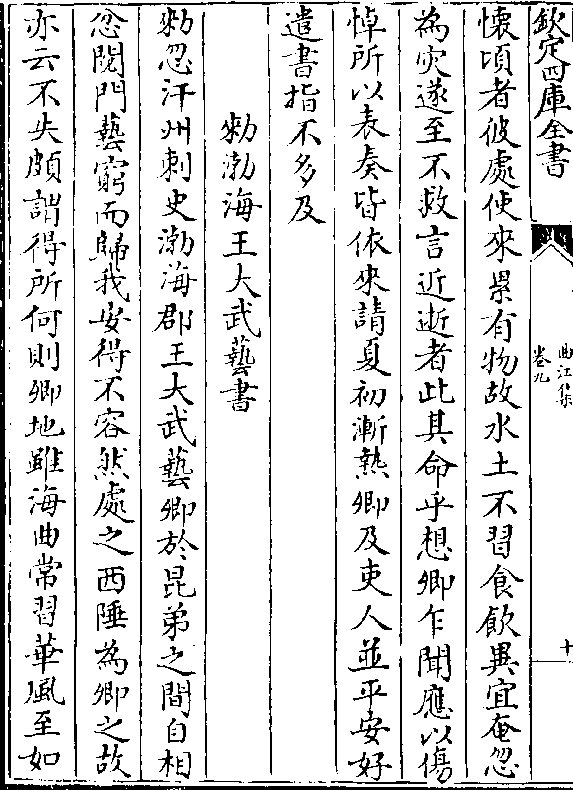 欽定四庫全書
曲江集
卷九
十
懐頃者彼處使來累有物故水土不習食飲異宜奄忽
為灾遂至不救言近逝者此其命乎想卿乍聞應以傷
悼所以表奏皆依來請夏初漸熱卿及吏人並平安好
遣書指不多及
勑渤海王大武藝書
勑忽汗州刺史渤海郡王大武藝卿於昆弟之間自相
忿䦧門藝窮而歸我安得不容然處之西陲為卿之故
亦云不失頗謂得所何則卿地雖海曲常習華風至如